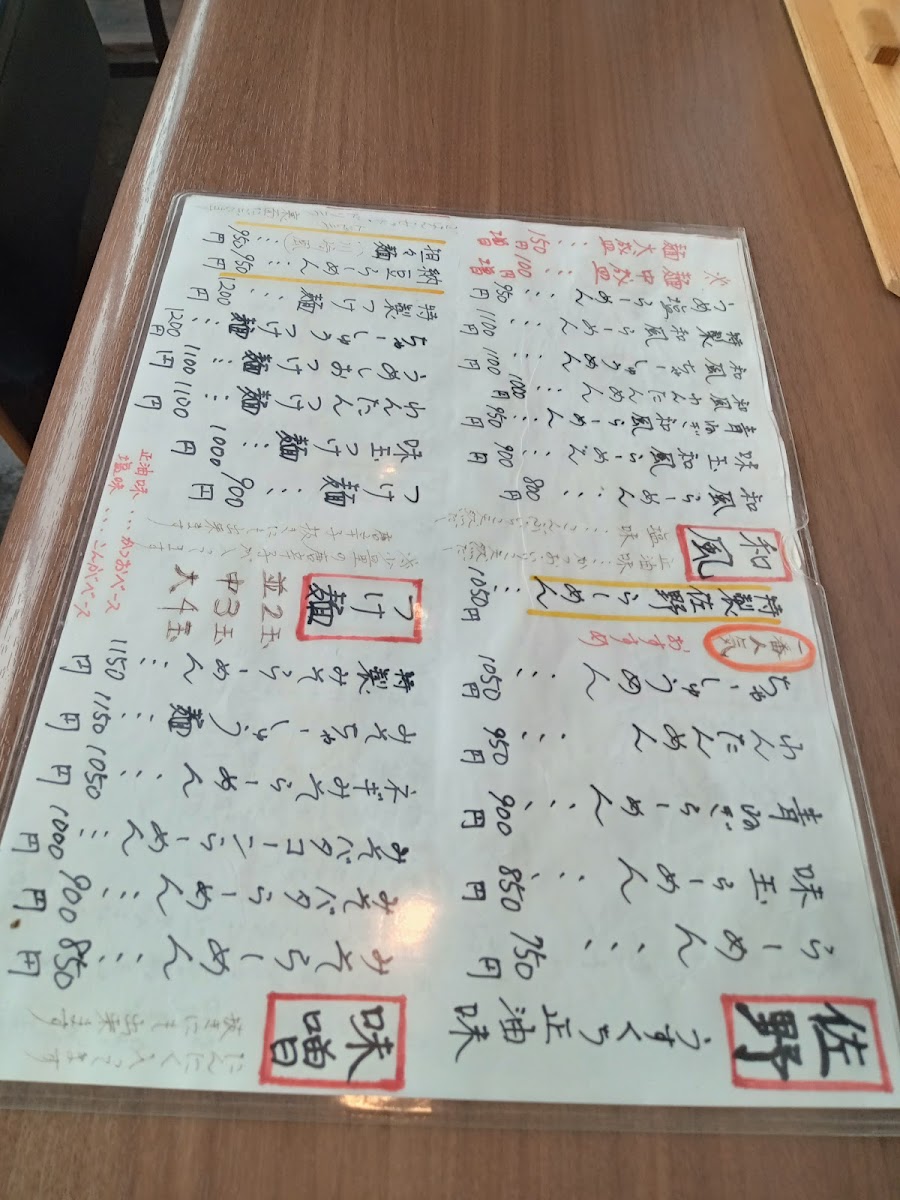 佐野
うすくち正油味
らーめん…750円
味玉らーめん…850円
青ねぎらーめん…900円
わんたんめん…950円
ちゃーしゅうめん…1050円
一番人気 おすすめ
特製佐野らーめん…1050円
和風
塩味
和風らーめん…800円
味玉和風らーめん…900円
青ねぎ和風らーめん…950円
和風わんたんめん 1000円
和風ちゃーしゅうめん 1100円
特製和風らーめん…1100円
うめ塩らーめん…950円
麺中盛…100円増
麺大盛…150円増
味噌
にんにく入ってます
抜きにも出来ます
みそらーめん…850円
みそバタらーめん…900円
みそバタコーンらーめん…1000円
ネギみそらーめん…1050円
みそちゃーしゅう麺…1150円
特製みそらーめん…1150円
つけ麺
並2玉
中3玉
大4玉
正油味…かつおベース
塩味…こんぶベース
つけ麺…900円
味玉つけ麺…1000円
わんたんつけ麺…1100円
うめしおつけ麺…1100円
ちゃーしゅうつけ麺…1200円
特製つけ麺…1200円
納豆らーめん…950円
担々麺…950円